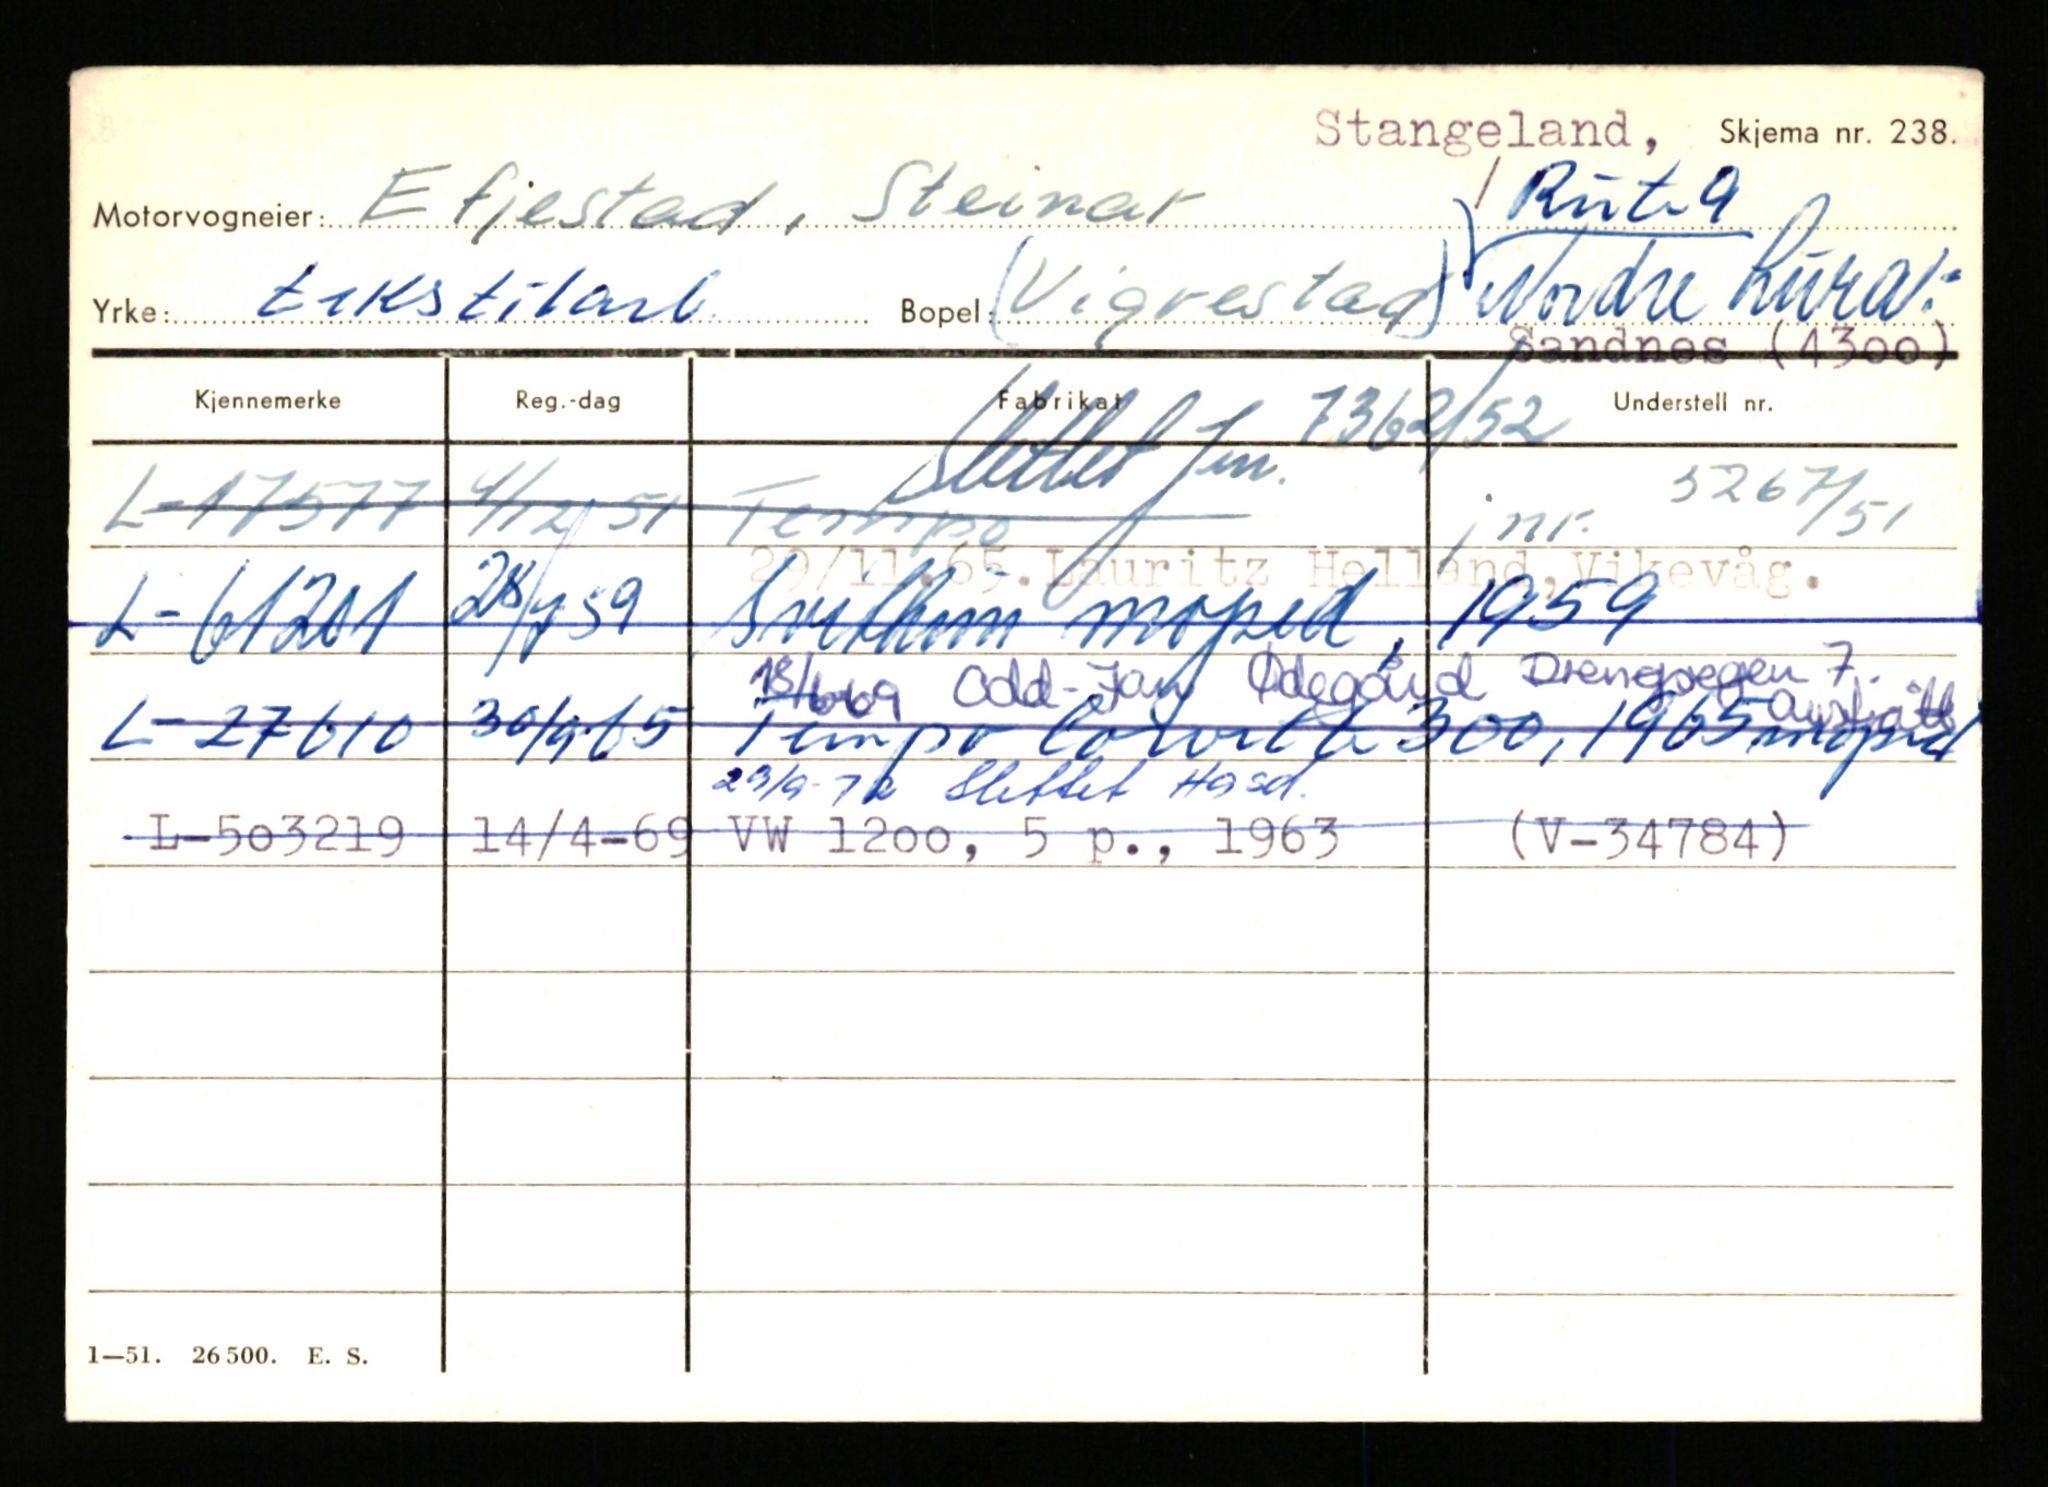 Stangeland, Skjema nr. 238.
Motorvogneier: Efjestad, Steinar / Rute 9
Yrke: tekstilarb. Bopel: (Vigrestad) Nordre Lura
Sandnes (4300)
Kjennemerke Reg.-dag Fabrikat Understell nr.
Slettet Jnr. 7362/52
L-17577 4/12 51 Tempo jnr. 5267/51
29/11.65. Lauritz Helland, Vikevåg.
L-61201 28/7 59 Svithun moped, 1959
18/6 69 Odd-Jan Ødegård Drengvegen 7.
L-27610 30/9 65 Tempo Corvette 300, 1965 moped
29/9-72 Slettet Hgsd.
L-503219 14/4-69 VW 1200, 5 p., 1963 (V-34784)
1—51. 26500. E. S.